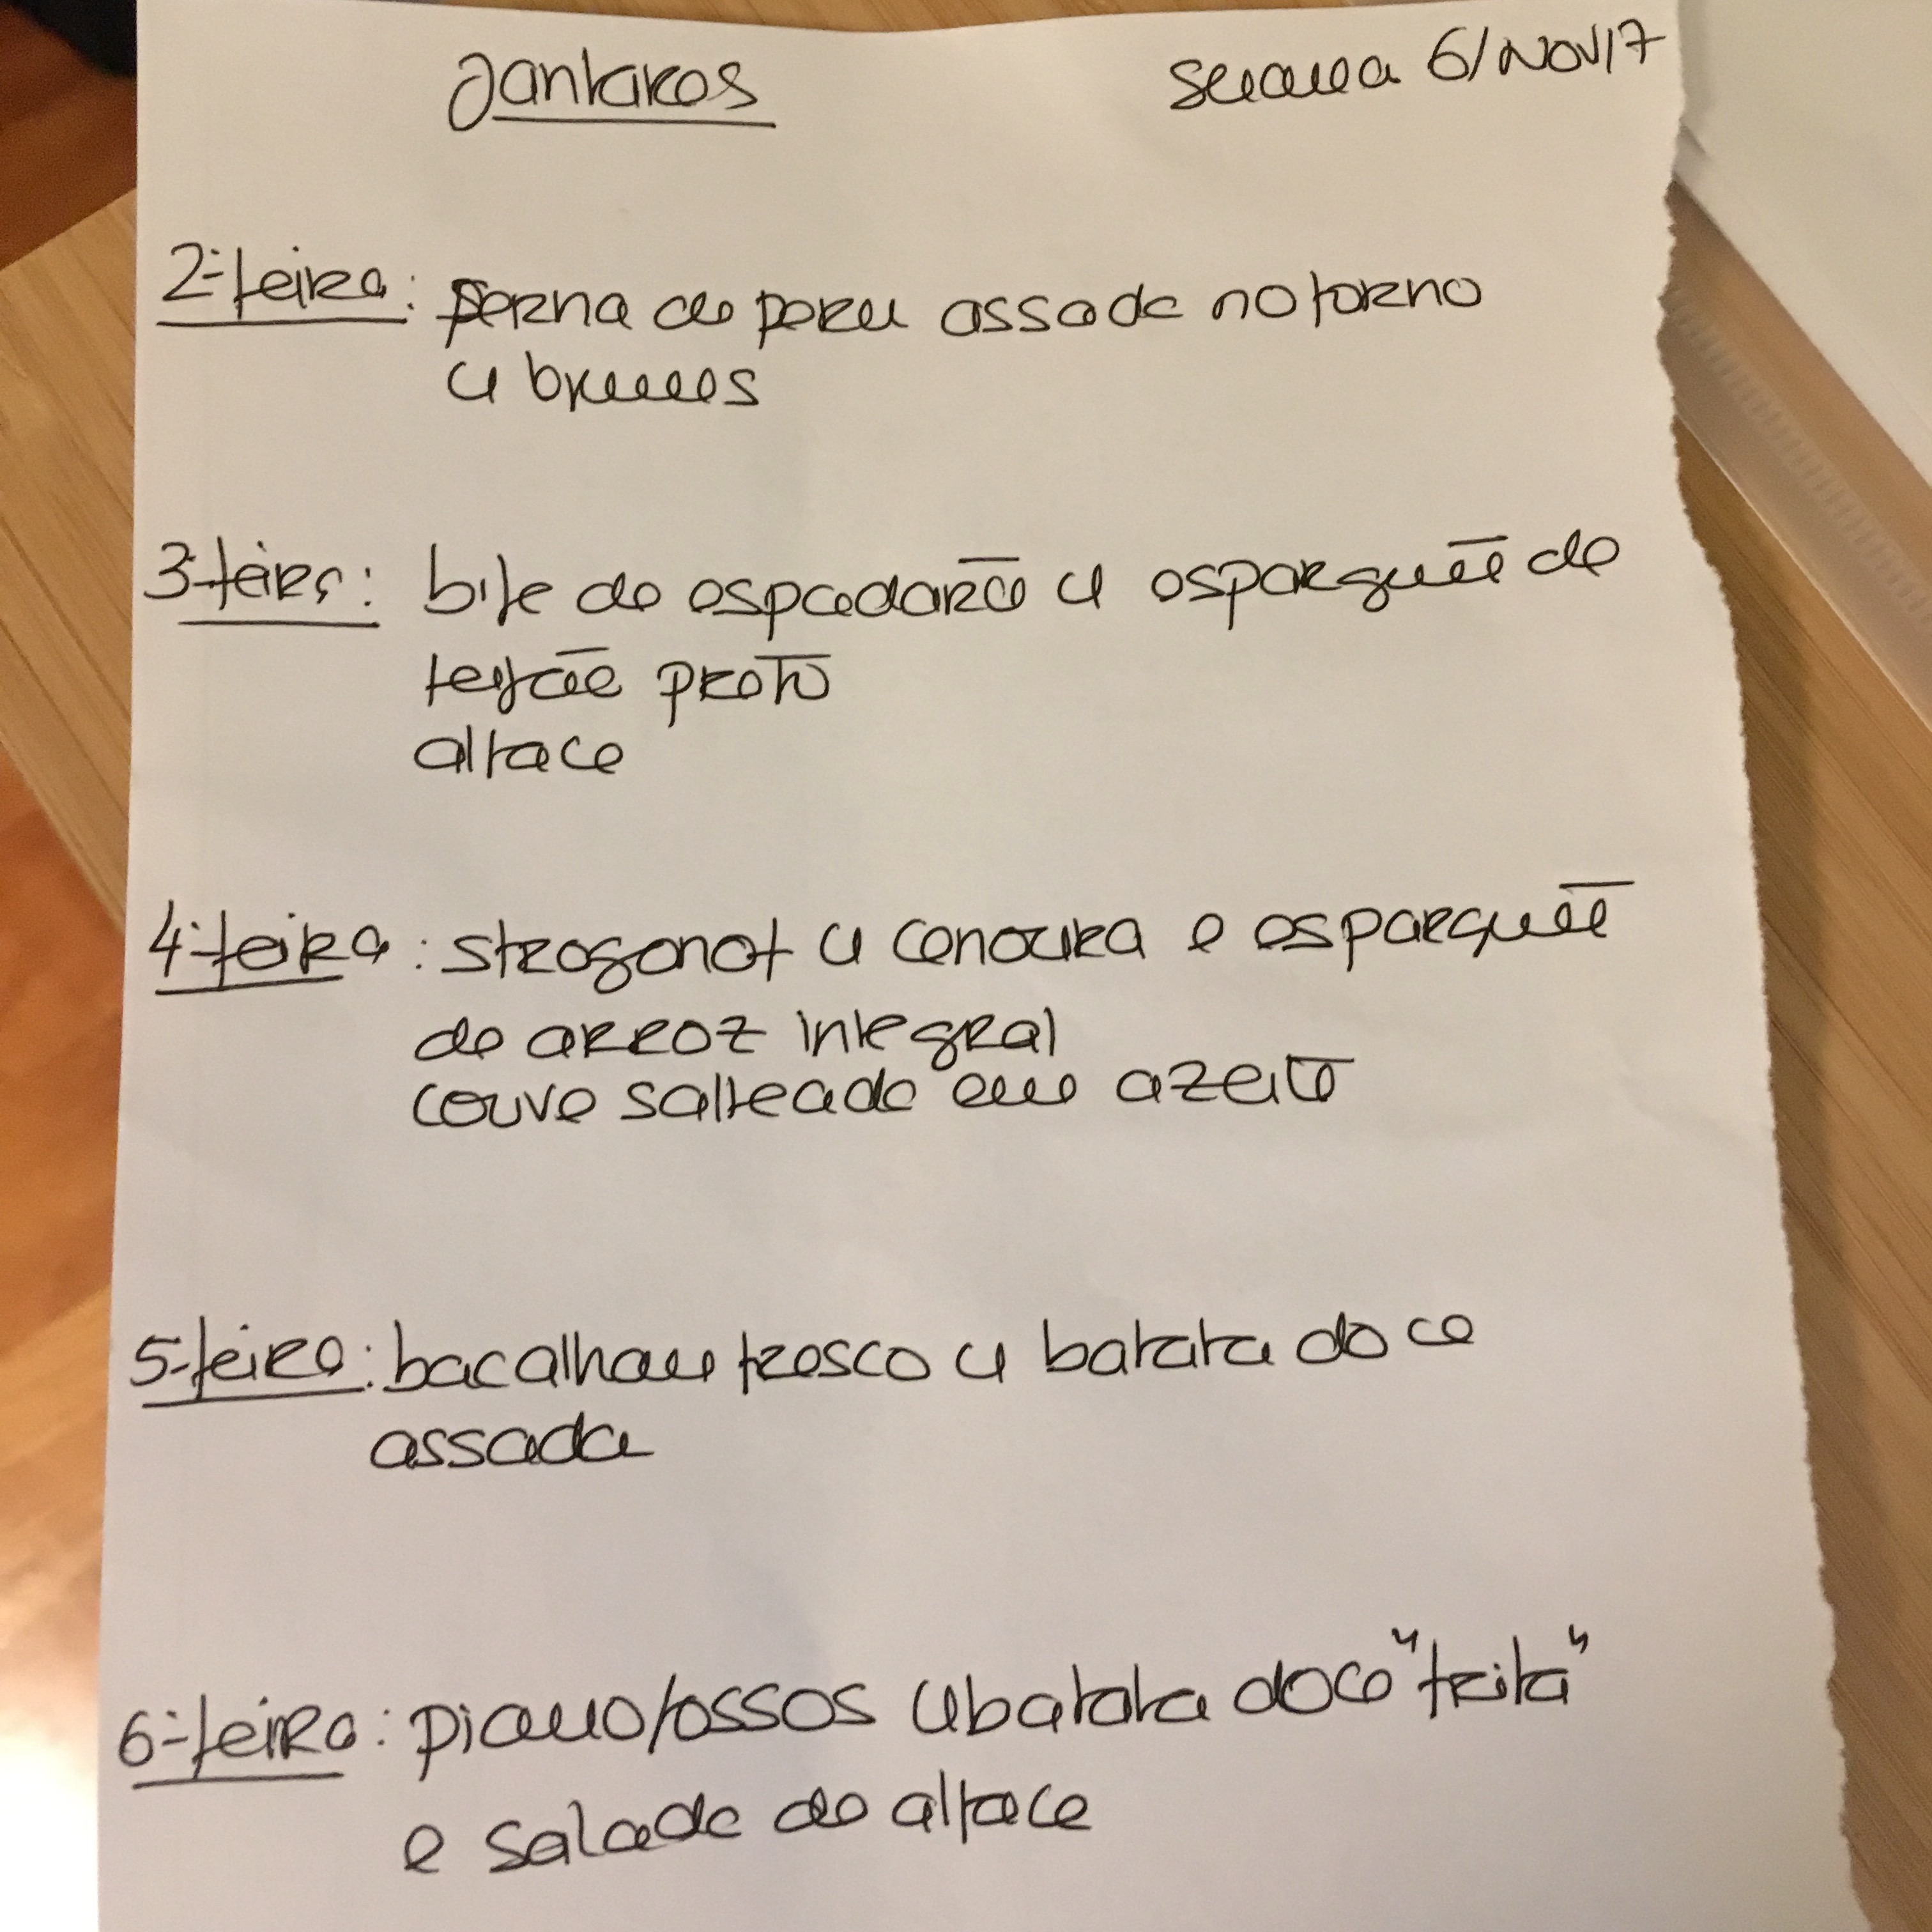 Jantares
semana 6/NOV/17
2ª-feira: perna de peru assada no forno
c/ brumos
3ª-feira: bife de espadarte c/ esparguete de
feijão preto
alface
4ª-feira: strogonof c/ cenoura e esparguete
de arroz integral
couve salteada em azeite
5ª-feira: bacalhau fresco c/ batata doce
assada
6ª-feira: piano/ossos c/ batata doce "frita"
e salada de alface